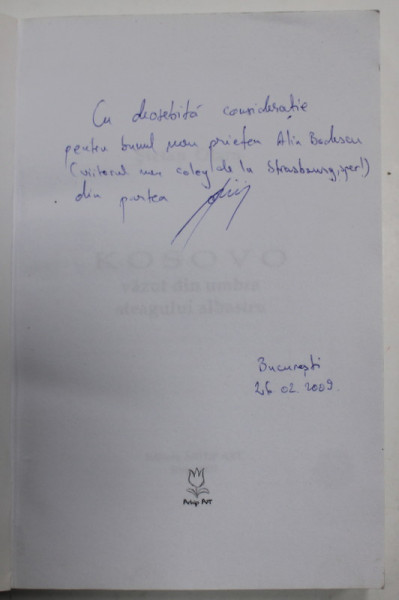 Cu deosebită considerație
pentru bunul meu prieten Alin Bodescu
(viitorul meu coleg de la Strasbourg, sper!)
din partea
KOSOVO
văzut din umbra
steagului albastru
București
26.02.2009.